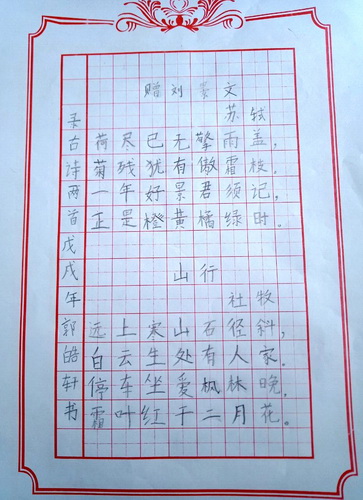 赠刘景文
苏轼
荷尽已无擎雨盖，
菊残犹有傲霜枝。
一年好景君须记，
正是橙黄橘绿时。
山行
杜牧
远上寒山石径斜，
白云生处有人家。
停车坐爱枫林晚，
霜叶红于二月花。
录古诗两首戊戌年郭皓轩书